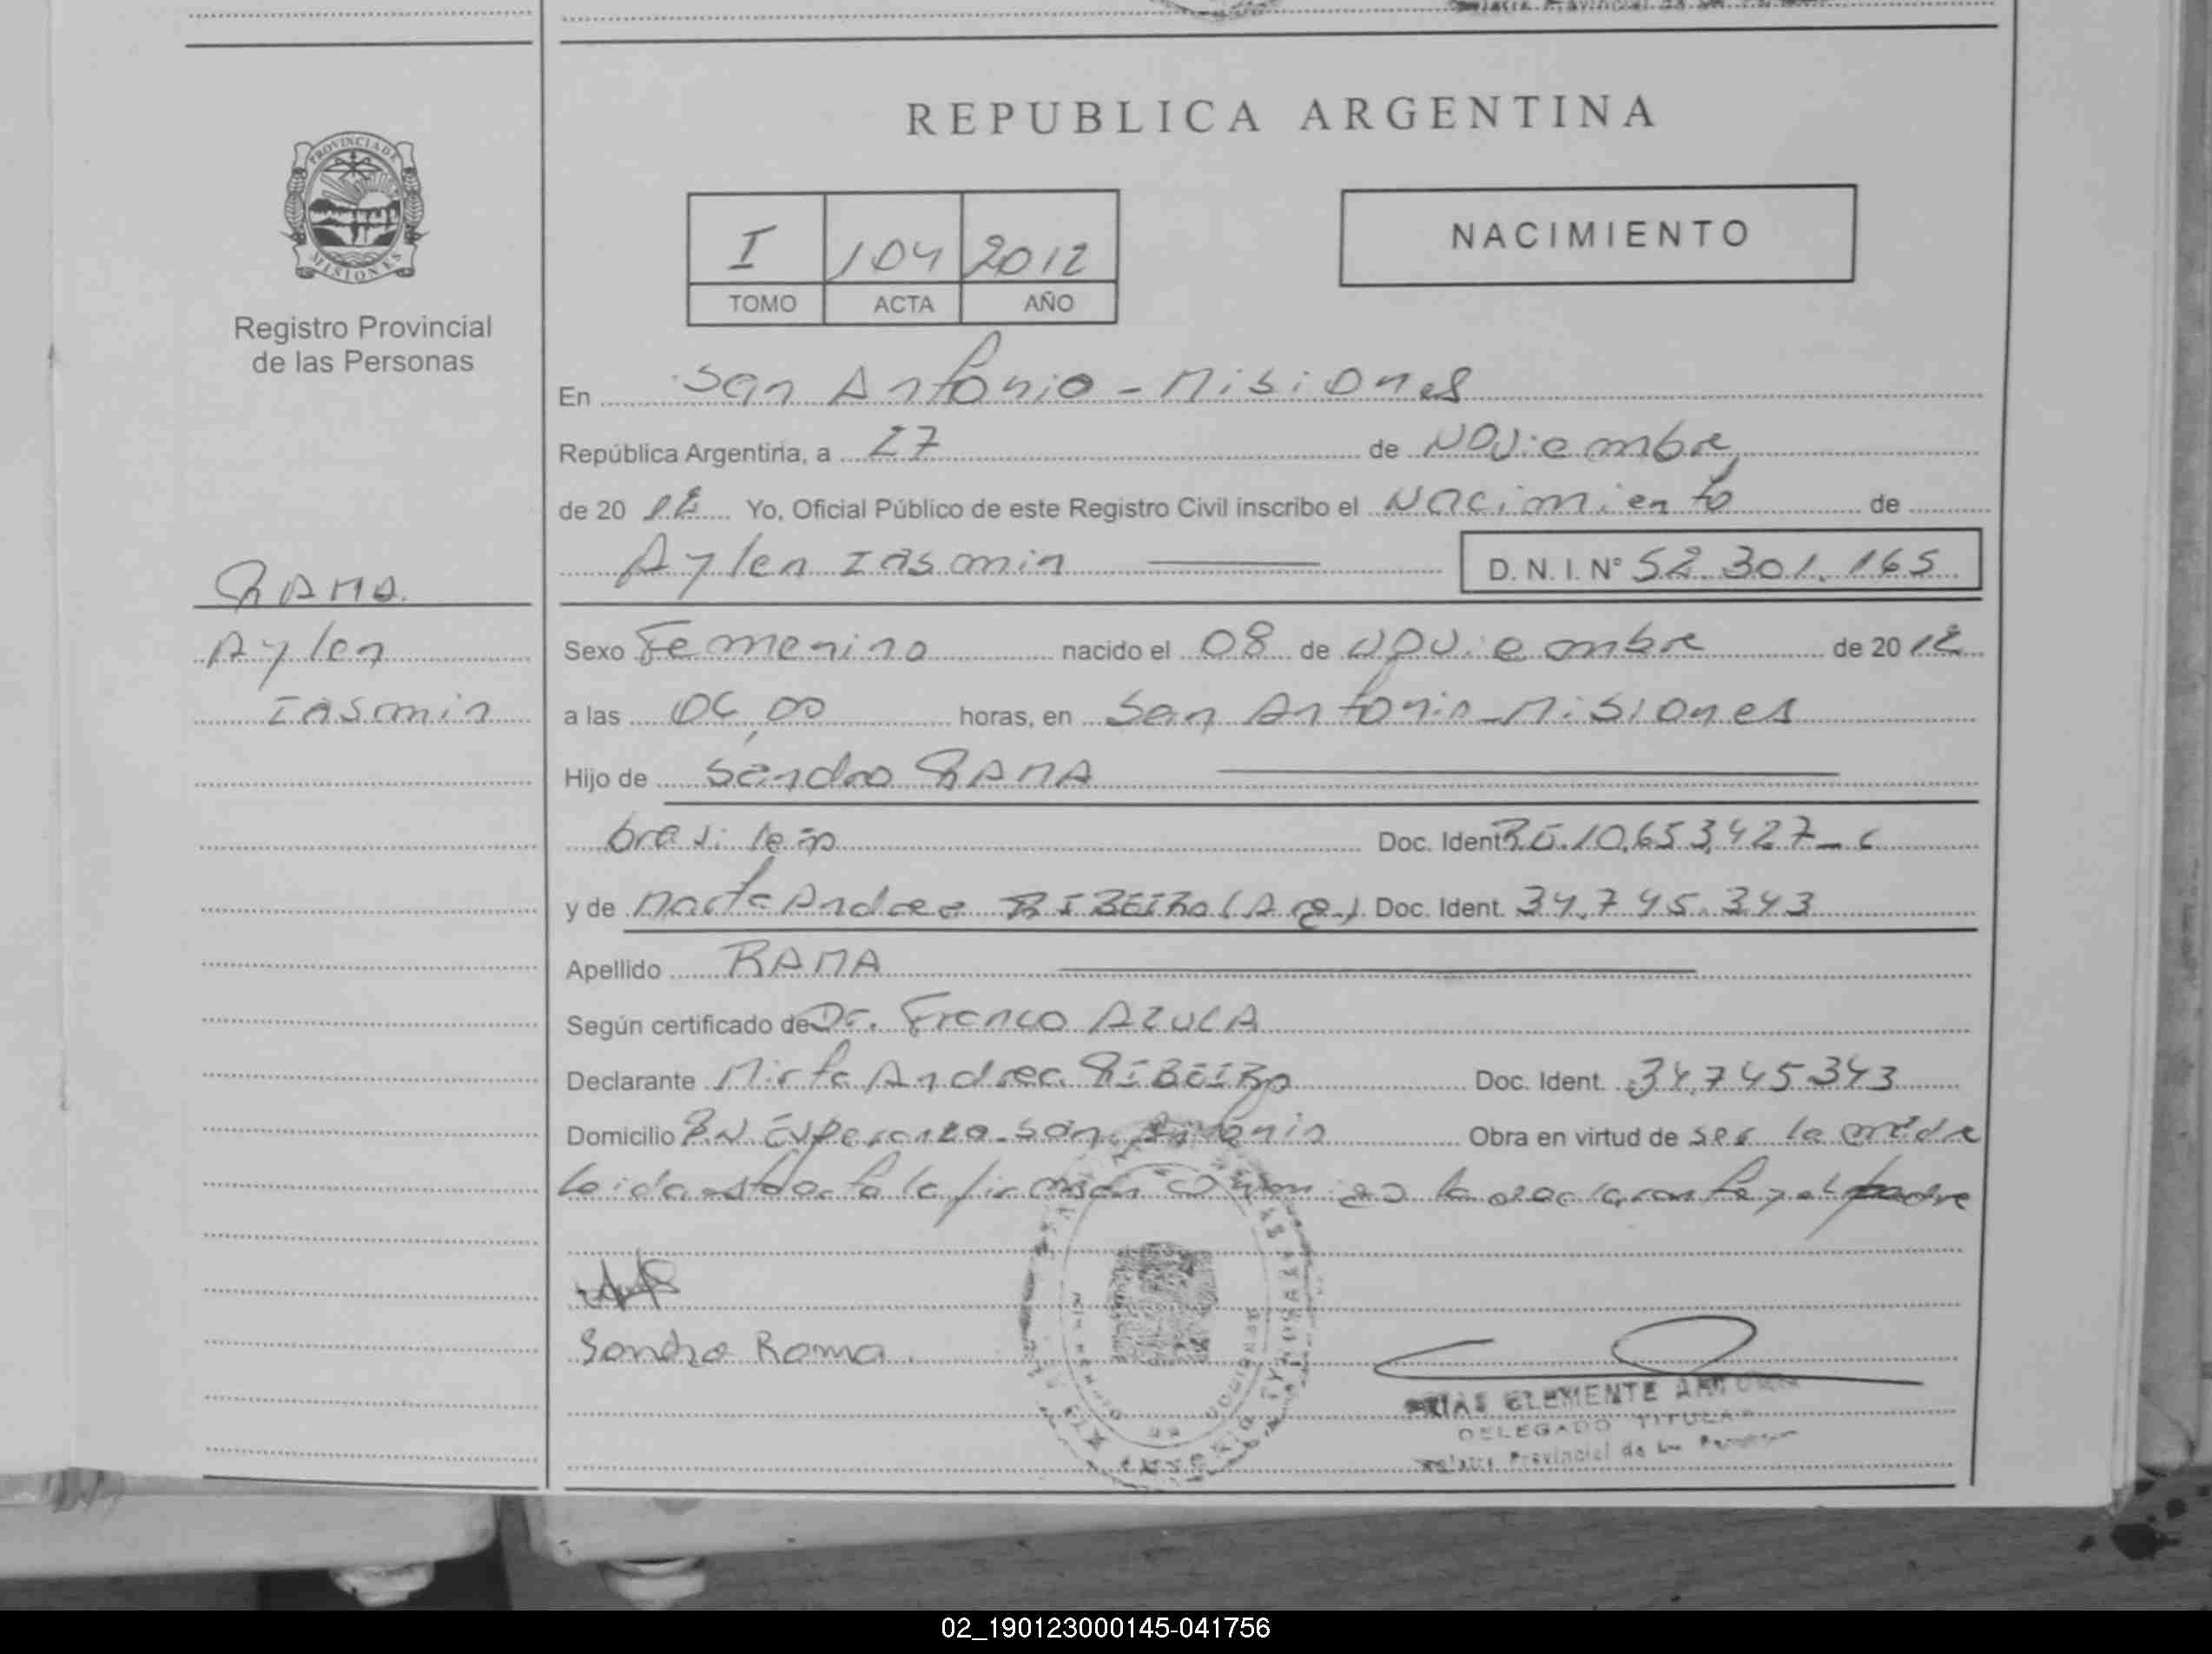 REPUBLICA ARGENTINA
PROVINCIA DE
MISIONES
Registro Provincial
de las Personas
I 104 2012
TOMO ACTA AÑO
NACIMIENTO
En San Antonio - Misiones
República Argentina, a 27 de Noviembre
de 20 12 Yo, Oficial Público de este Registro Civil inscribo el Nacimiento de
Aylen Iasmin D. N. I. Nº 52.301.165
RAMA.
Aylen
Iasmin
Sexo Femenino nacido el 08 de Noviembre de 20 12
a las 06,00 horas, en San Antonio - Misiones
Hijo de Sandro RAMA
brasileño Doc. Ident 10.653.427-6
y de Andrea RIBEIRO (Arg.) Doc. Ident. 34.745.343
Apellido RAMA
Según certificado de Dr. Franco AZULA
Declarante Mirta Andrea RIBEIRO Doc. Ident. 34.745.343
Domicilio Esperanza - San Antonio Obra en virtud de ser la madre
Leida esta acta la firman conmigo la declarante y el padre
Sandro Rama
CLEMENTE
DELEGADO TITULAR
Provincial de las Personas
02_190123000145-041756